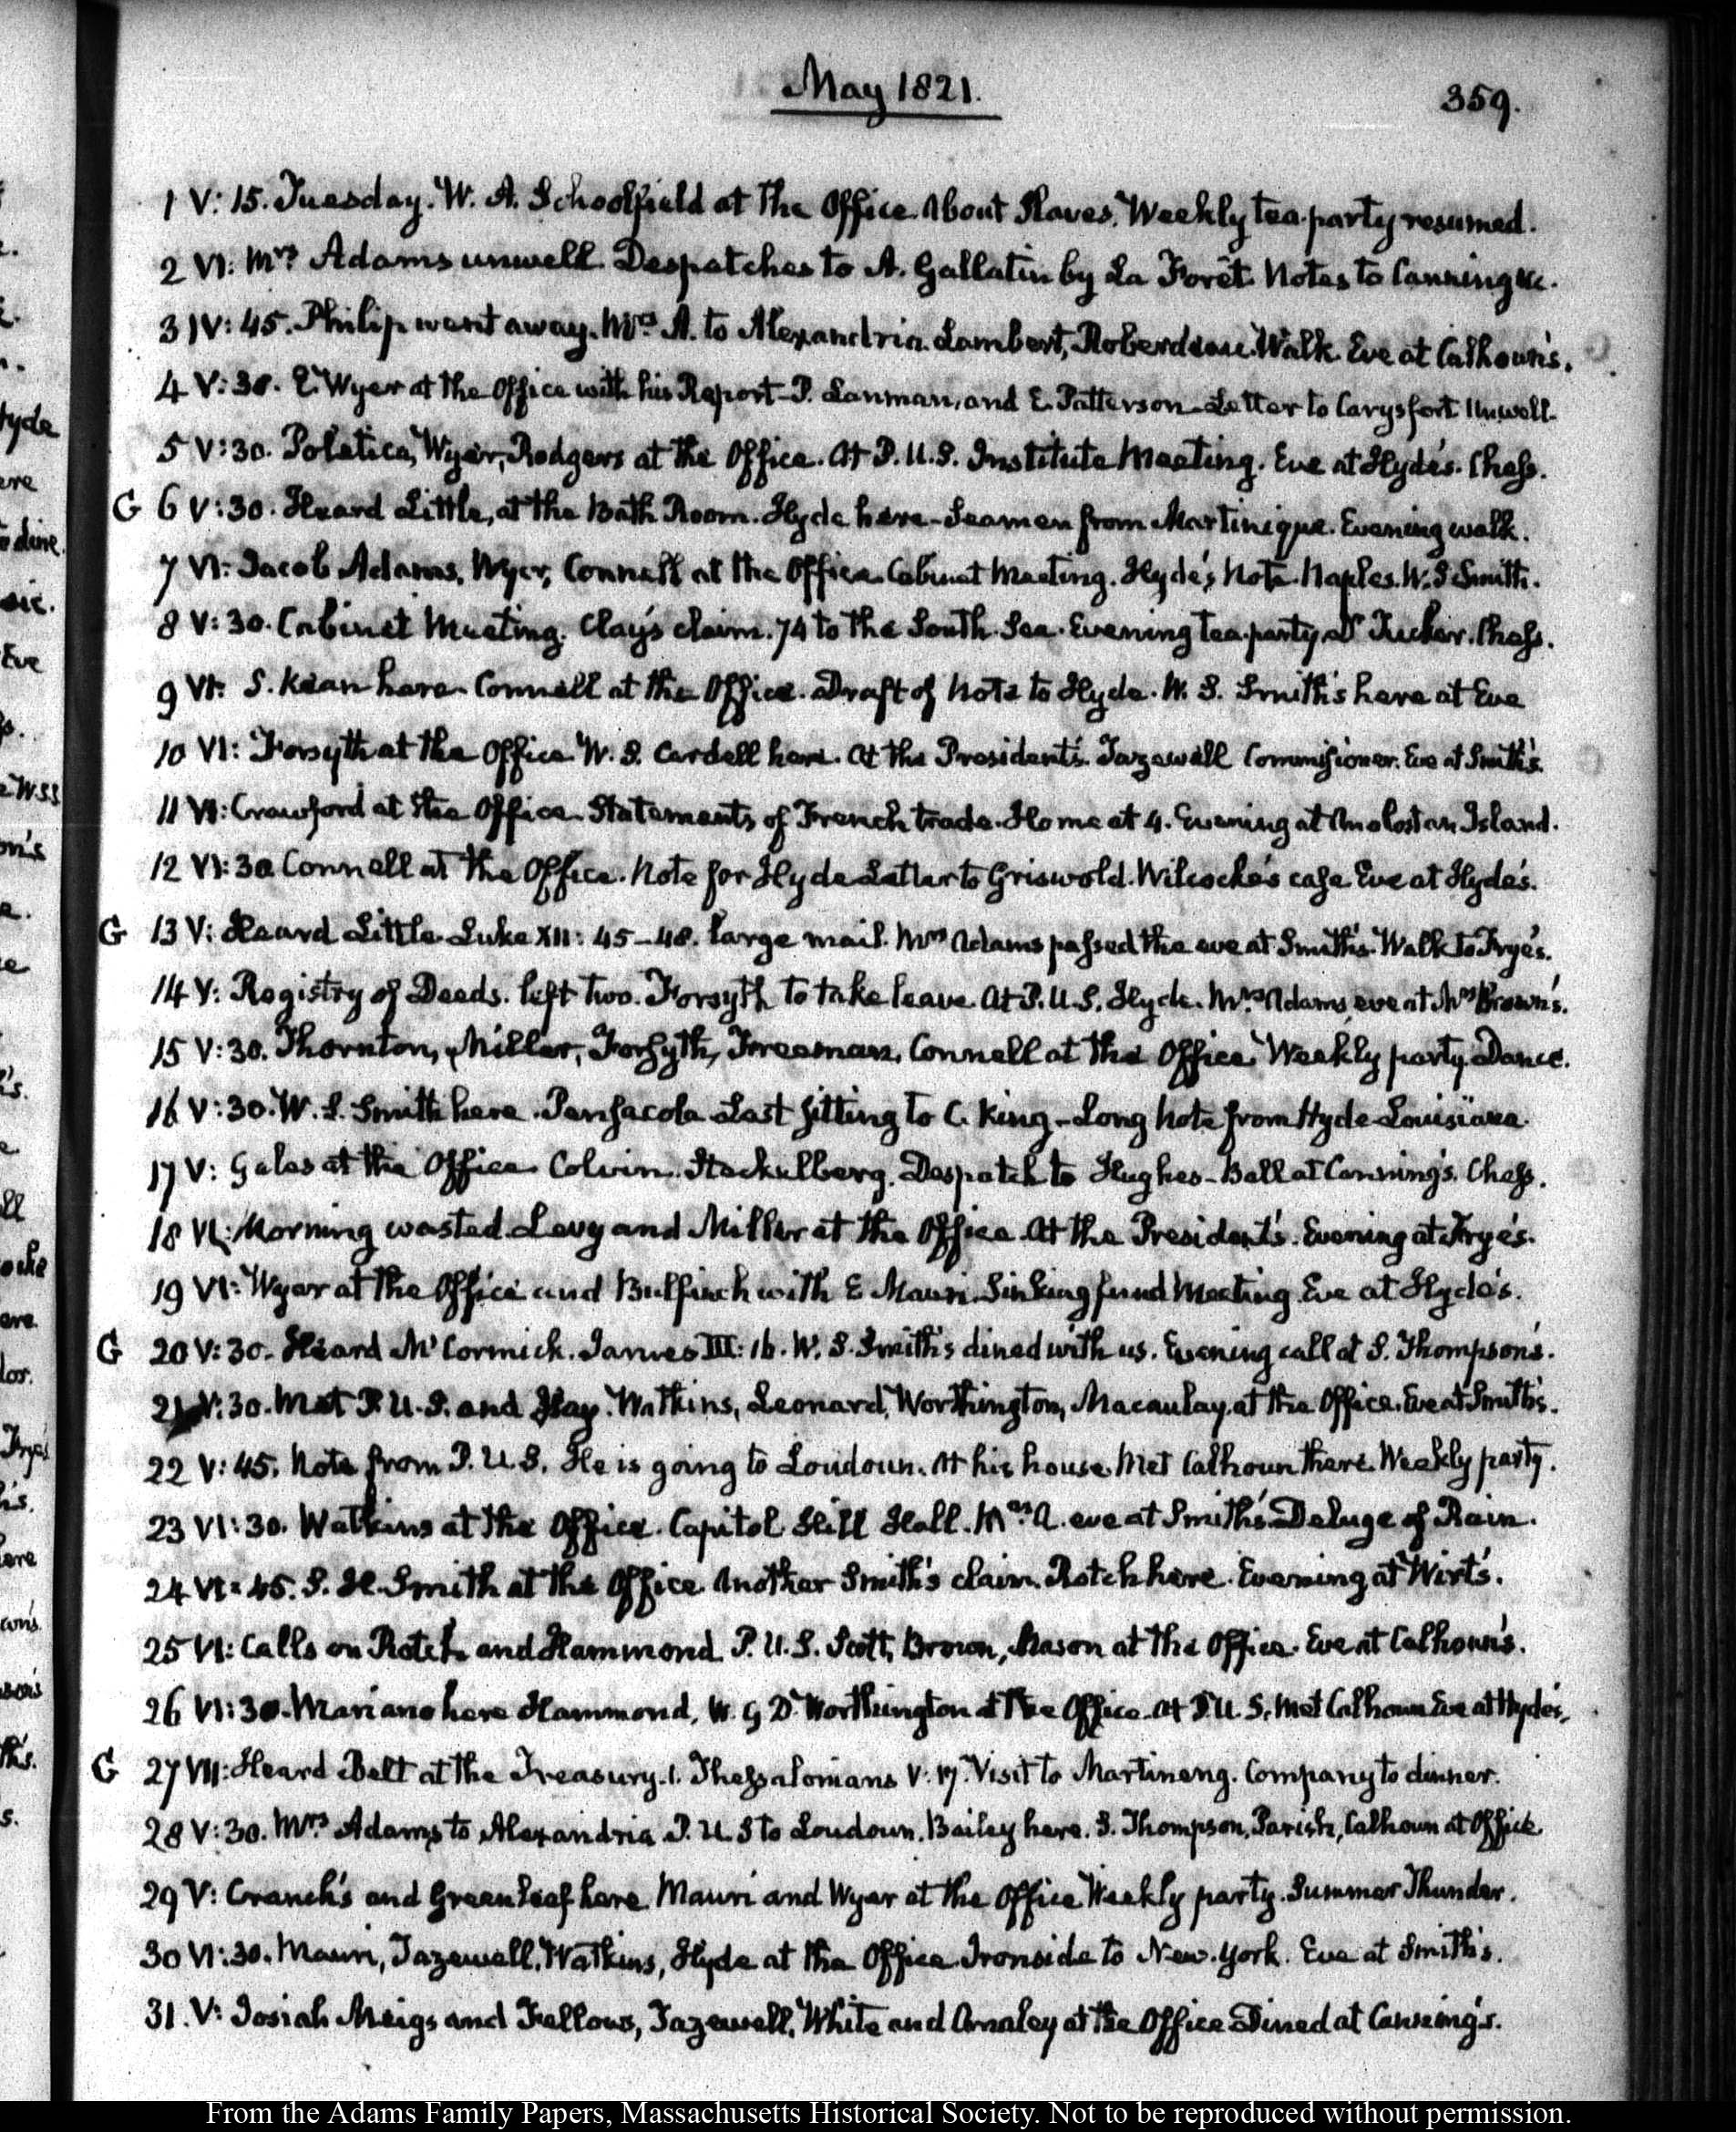 May 1821.
359.
1 V: 15. Tuesday. W. A. Schoolfield at the Office. About Slaves. Weekly tea party resumed.
2 VI: Mrs Adams unwell. Despatches to A. Gallatin by La Forêt. Notes to Canning &c.
3 IV: 45. Philip went away. Mrs A. to Alexandria. Lambert, Roberdeau. Walk. Eve at Calhoun's.
4 V: 30. E. Wyer at the Office with his Report—P. Lanman, and E. Patterson—Letter to Carysfort. Unwell.
5 V: 30. Poletica, Wyer, Rodgers at the Office. At P. U. S. Institute Meeting. Eve at Hyde's. Chess.
G 6 V: 30. Heard Little, at the Bath Room. Hyde here—Seamen from Martinique. Evening walk.
7 VI: Jacob Adams, Wyer, Connell at the Office. Cabinet Meeting. Hyde's Note. Naples. W. S Smith.
8 V: 30. Cabinet Meeting. Clay's claim. 74 to the South Sea. Evening tea party Dr Tucker. Chess.
9 VI: S. Kean here. Connell at the Office. Draft of Note to Hyde. W. S. Smith's here at Eve
10 VI: Forsyth at the Office. W. S. Cardell here. At the President's. Tazewell Commissioner. Eve at Smith's.
11 VI: Crawford at the Office. Statements of French trade. Home at 4. Evening at Analostan Island.
12 VI: 30 Connell at the Office. Note for Hyde Letter to Griswold. Wilcocks's case Eve at Hyde's.
G 13 V: Heard Little. Luke XII: 45–48. large mail. Mrs Adams passed the eve at Smith's. Walk to Frye's.
14 V: Registry of Deeds. left two. Forsyth to take leave. At P. U. S. Hyde. Mrs Adams, eve at Mrs Brown's.
15 V: 30. Thornton, Miller, Forsyth, Freeman, Connell at the Office. Weekly party. Dance.
16 V: 30. W. S. Smith here. Pensacola. Last sitting to C. King—Long note from Hyde—Louisiana.
17 V: Gales at the Office. Colvin. Stackelberg. Despatch to Hughes—Ball at Canning's. Chess.
18 VI: Morning wasted. Levy and Miller at the Office. At the President's. Evening at Frye's.
19 VI: Wyer at the Office and Bulfinch with E Mauri. Sinking fund Meeting. Eve at Hyde's.
G 20 V: 30. Heard McCormick. James III: 16. W. S. Smith's dined with us. Evening call at S. Thompson's.
21 V: 30. Met P. U. S. and Hay. Watkins, Leonard, Worthington, Macaulay, at the Office. Eve at Smith's.
22 V: 45. Note from P. U. S. He is going to Loudoun. At his house. Met Calhoun there. Weekly party.
23 VI: 30. Watkins at the Office. Capitol Hill Hall. Mrs A. eve at Smith's. Deluge of Rain.
24 VI: 45. S. H. Smith at the Office. Another Smith's claim. Rotch here. Evening at Wirt's.
25 VI: Calls on Rotch and Hammond. P. U. S. Scott, Brown, Mason at the Office. Eve at Calhoun's.
26 VI: 30. Mariano here Hammond, W. G D. Worthington at the Office. At P. U. S. Met Calhoun Eve at Hyde's.
G 27 VII: Heard Belt at the Treasury. 1. Thessalonians V. 17. Visit to Martineng. Company to dinner.
28 V: 30. Mrs Adams to Alexandria. P. U. S to Loudoun. Bailey here. S. Thompson, Parish, Calhoun at Office
29 V: Cranch's and Greenleaf here. Mauri and Wyer at the Office. Weekly party. Summer Thunder.
30 VI: 30. Mauri, Tazewell, Watkins, Hyde at the Office. Ironside to New-York. Eve at Smith's.
31. V: Josiah Meigs and Fellows, Tazewell, White and at the Office. Dined at Canning's.
From the Adams Family Papers, Massachusetts Historical Society. Not to be reproduced without permission.